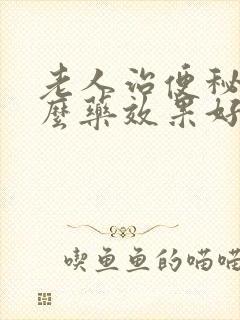 老人治便秘
麼藥效果好
喫魚魚的喵喵